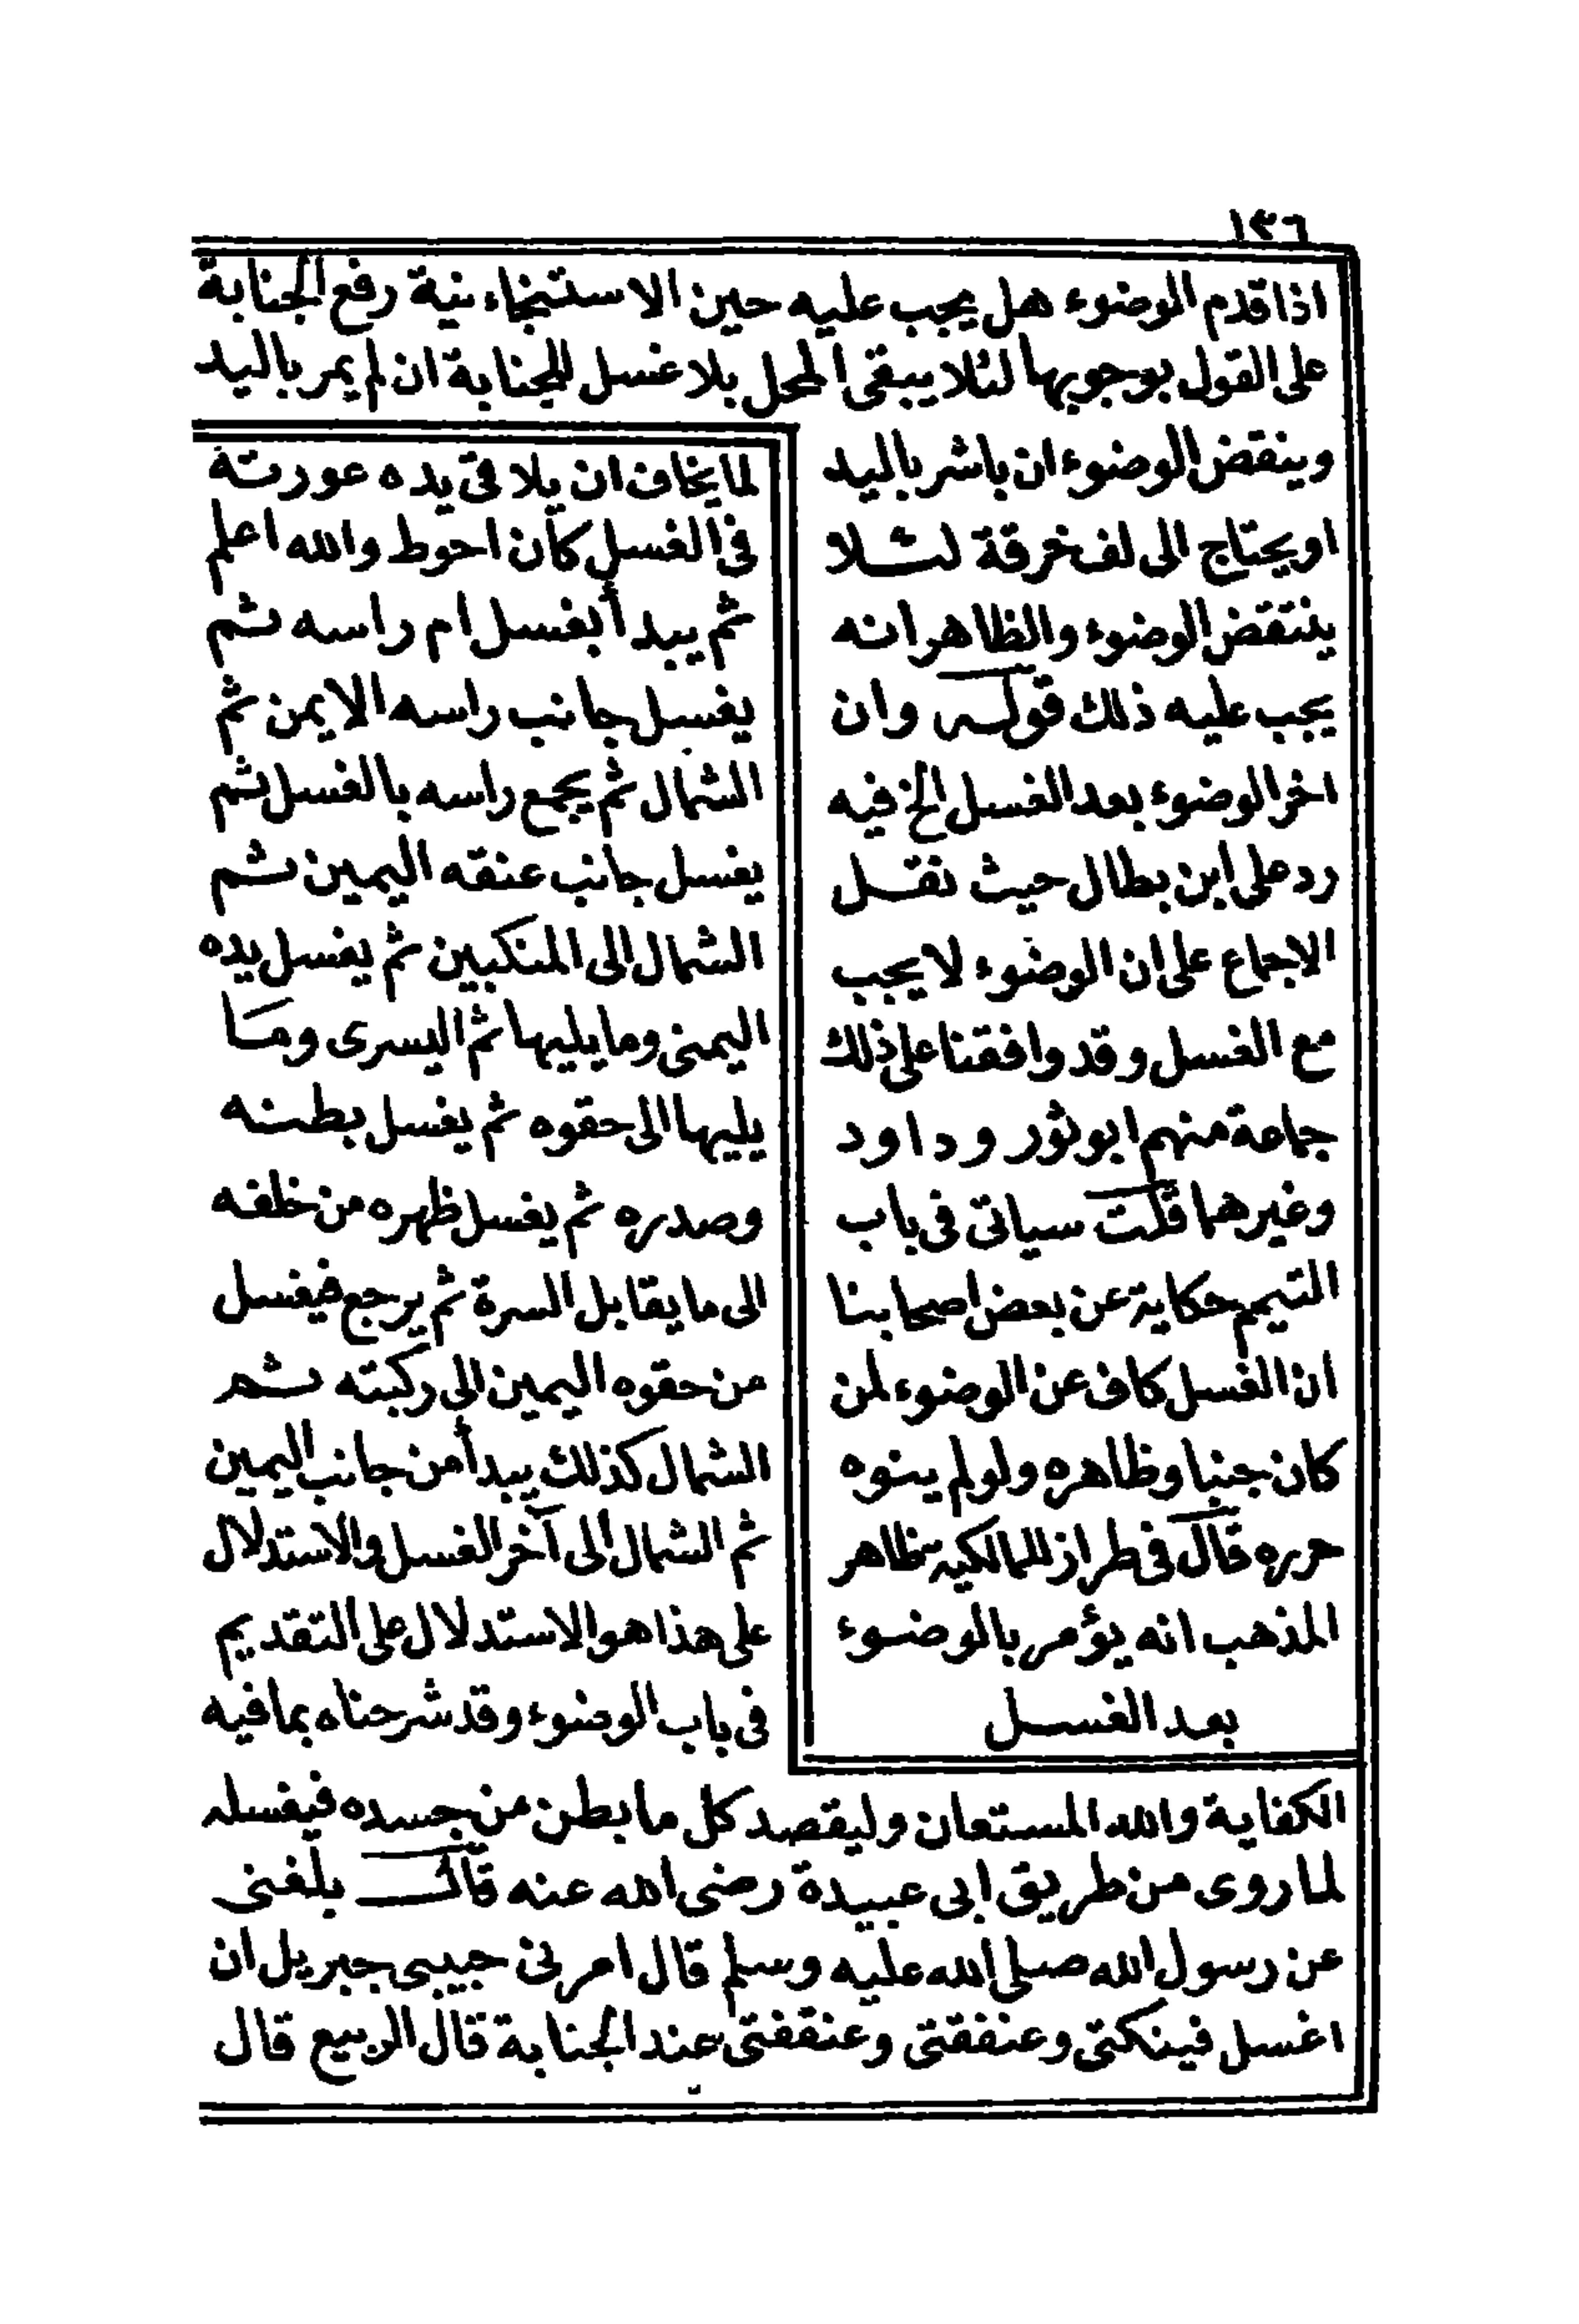 ١٣٦
اذا قدم الوضوء هل يجب عليه حين الاستنجاء نية رفع الجنابة
على القول بوجوبها لئلا يبقى المحل بلا غسل للجنابة ان لم يمر باليد
وينقض الوضوء ان باشر باليد
او يحتاج الى لف خرقة لئلا
ينتقض الوضوء والظاهر انه
يجب عليه ذلك قوله وان
اخر الوضوء بعد الغسل الخ فيه
رد على ابن بطال حيث نقل
الاجماع على ان الوضوء لا يجب
مع الغسل وقد وافقنا على ذلك
جماعة منهم ابو ثور وداود
وغيرهما قلت سياتى فى باب
التيمم حكاية عن بعض اصحابنا
ان الغسل كاف عن الوضوء لمن
كان جنبا وظاهره ولو لم ينوه
حرره قال فى طراز للمالكية ظاهر
المذهب انه يؤمر بالوضوء
بعد الغسل
لما يخاف ان يلاقى يده عورته
فى الغسل كان احوط والله اعلم
ثم يبدأ بغسل ام راسه ثم
يغسل جانب راسه الايمن ثم
الشمال ثم يجمع راسه بالغسل ثم
يغسل جانب عنقه اليمين ثم
الشمال الى المنكبين ثم يغسل يده
اليمنى وما يليها ثم اليسرى وما
يليها الى حقوه ثم يغسل بطنه
وصدره ثم يغسل ظهره من خلفه
الى ما يقابل السرة ثم يرجع فيغسل
من حقوه اليمين الى ركبته ثم
الشمال كذلك يبدأ من جانب اليمين
ثم الشمال الى آخر الغسل والاستدلال
على هذا هو الاستدلال على التقديم
فى باب الوضوء وقد شرحناه بما فيه
الكفاية والله المستعان وليقصد كل ما بطن من جسده فيغسله
لما روى من طريق ابى عبيدة رضى الله عنه قال بلغنى
عن رسول الله صلى الله عليه وسلم قال امرنى حبيبى جبريل ان
اغسل فينكتى وعنفقتى وعنقفتى عند الجنابة قال الربيع قال